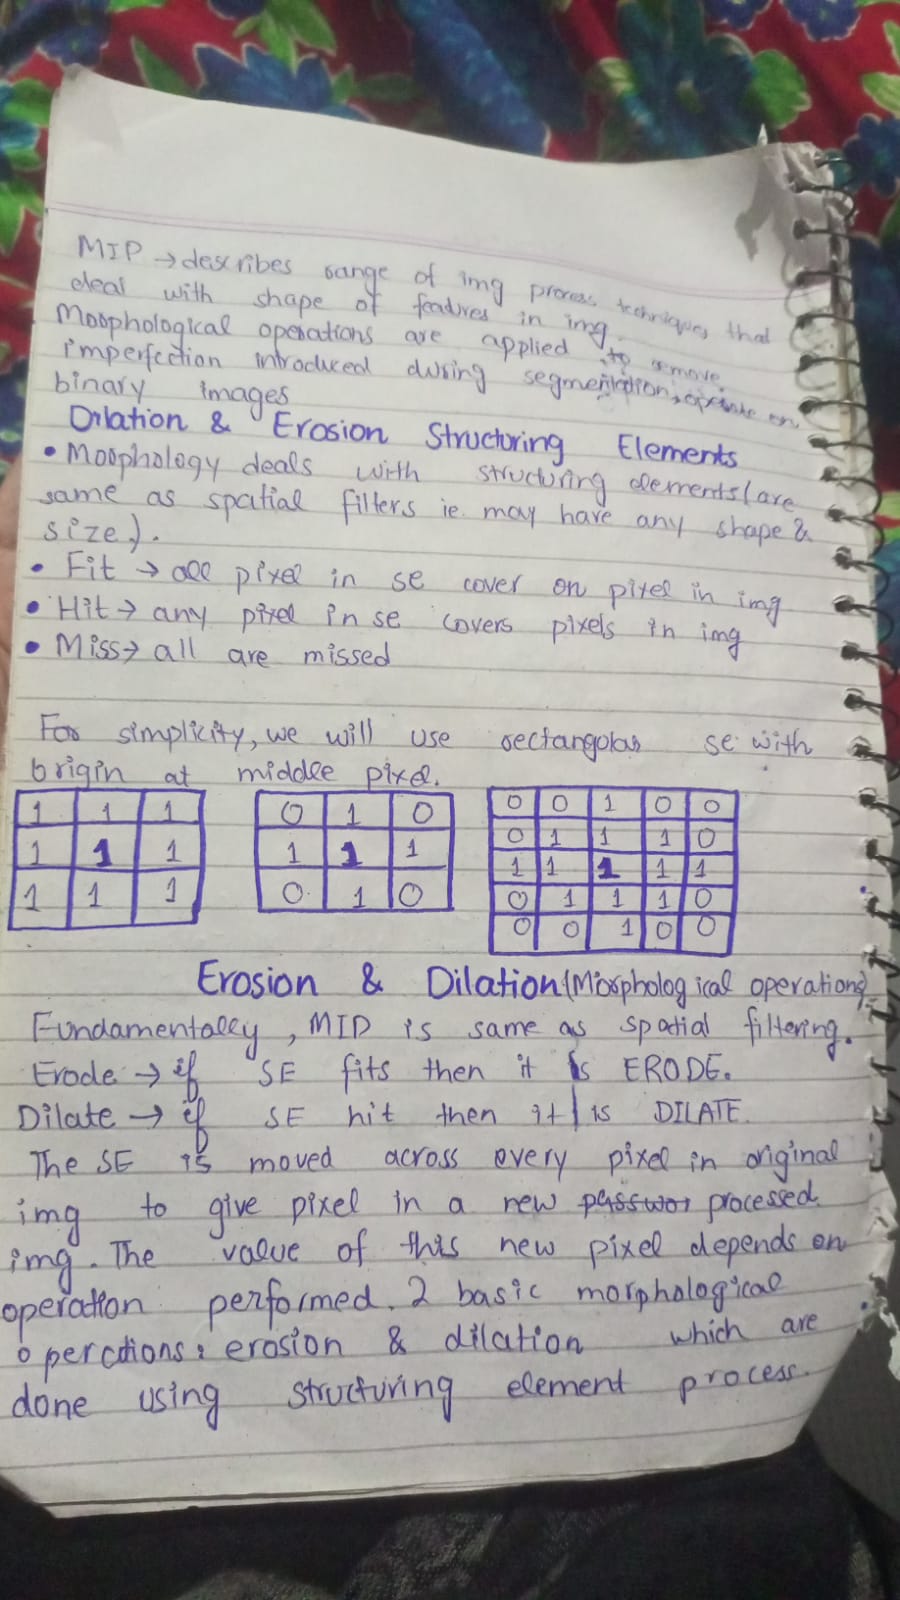 MIP → describes range of img process techniques that
deal with shape of features in img.
Morphological operations are applied to remove
imperfection introduced during segmentation, operate on
binary images
Dilation & Erosion Structuring Elements
• Morphology deals with structuring elements (are
same as spatial filters ie. may have any shape &
size).
• Fit → all pixel in se cover on pixel in img
• Hit → any pixel in se covers pixels in img
• Miss → all are missed
For simplicity, we will use rectangular se with
origin at middle pixel.
1 1 1
1 1 1
1 1 1
0 1 0
1 1 1
0 1 0
0 0 1 0 0
0 1 1 1 0
1 1 1 1 1
0 1 1 1 0
0 0 1 0 0
Erosion & Dilation (Morphological operations)
Fundamentally, MID is same as spatial filtering.
Erode → if SE fits then it is ERODE.
Dilate → if SE hit then it is DILATE.
The SE is moved across every pixel in original
img to give pixel in a new processed
img. The value of this new pixel depends on
operation performed. 2 basic morphological
operations: erosion & dilation which are
done using structuring element process.